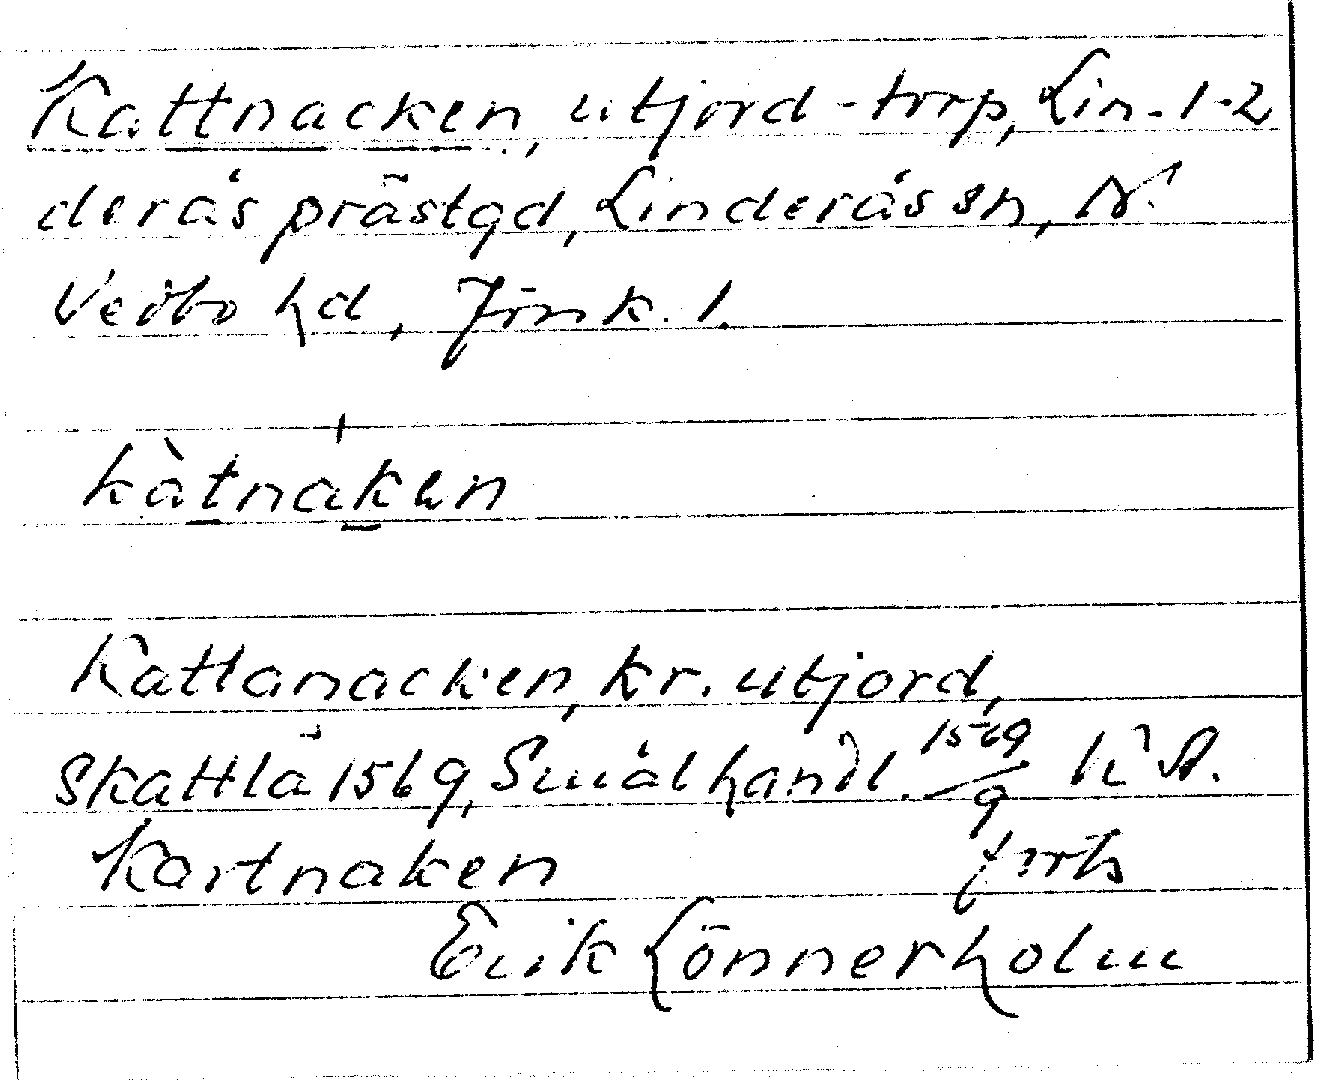 Kattnacken, utjord-torp, Lin- 1-2
derås prästgd, Linderås sn, N.
Vedbo hd, Jönk. l.
kàtnákən
Kattanacken, kr. utjord,
skattlä 1569, Smål handl. 1569/9 KA.
Kartnaken forts
Erik Lönnerholm